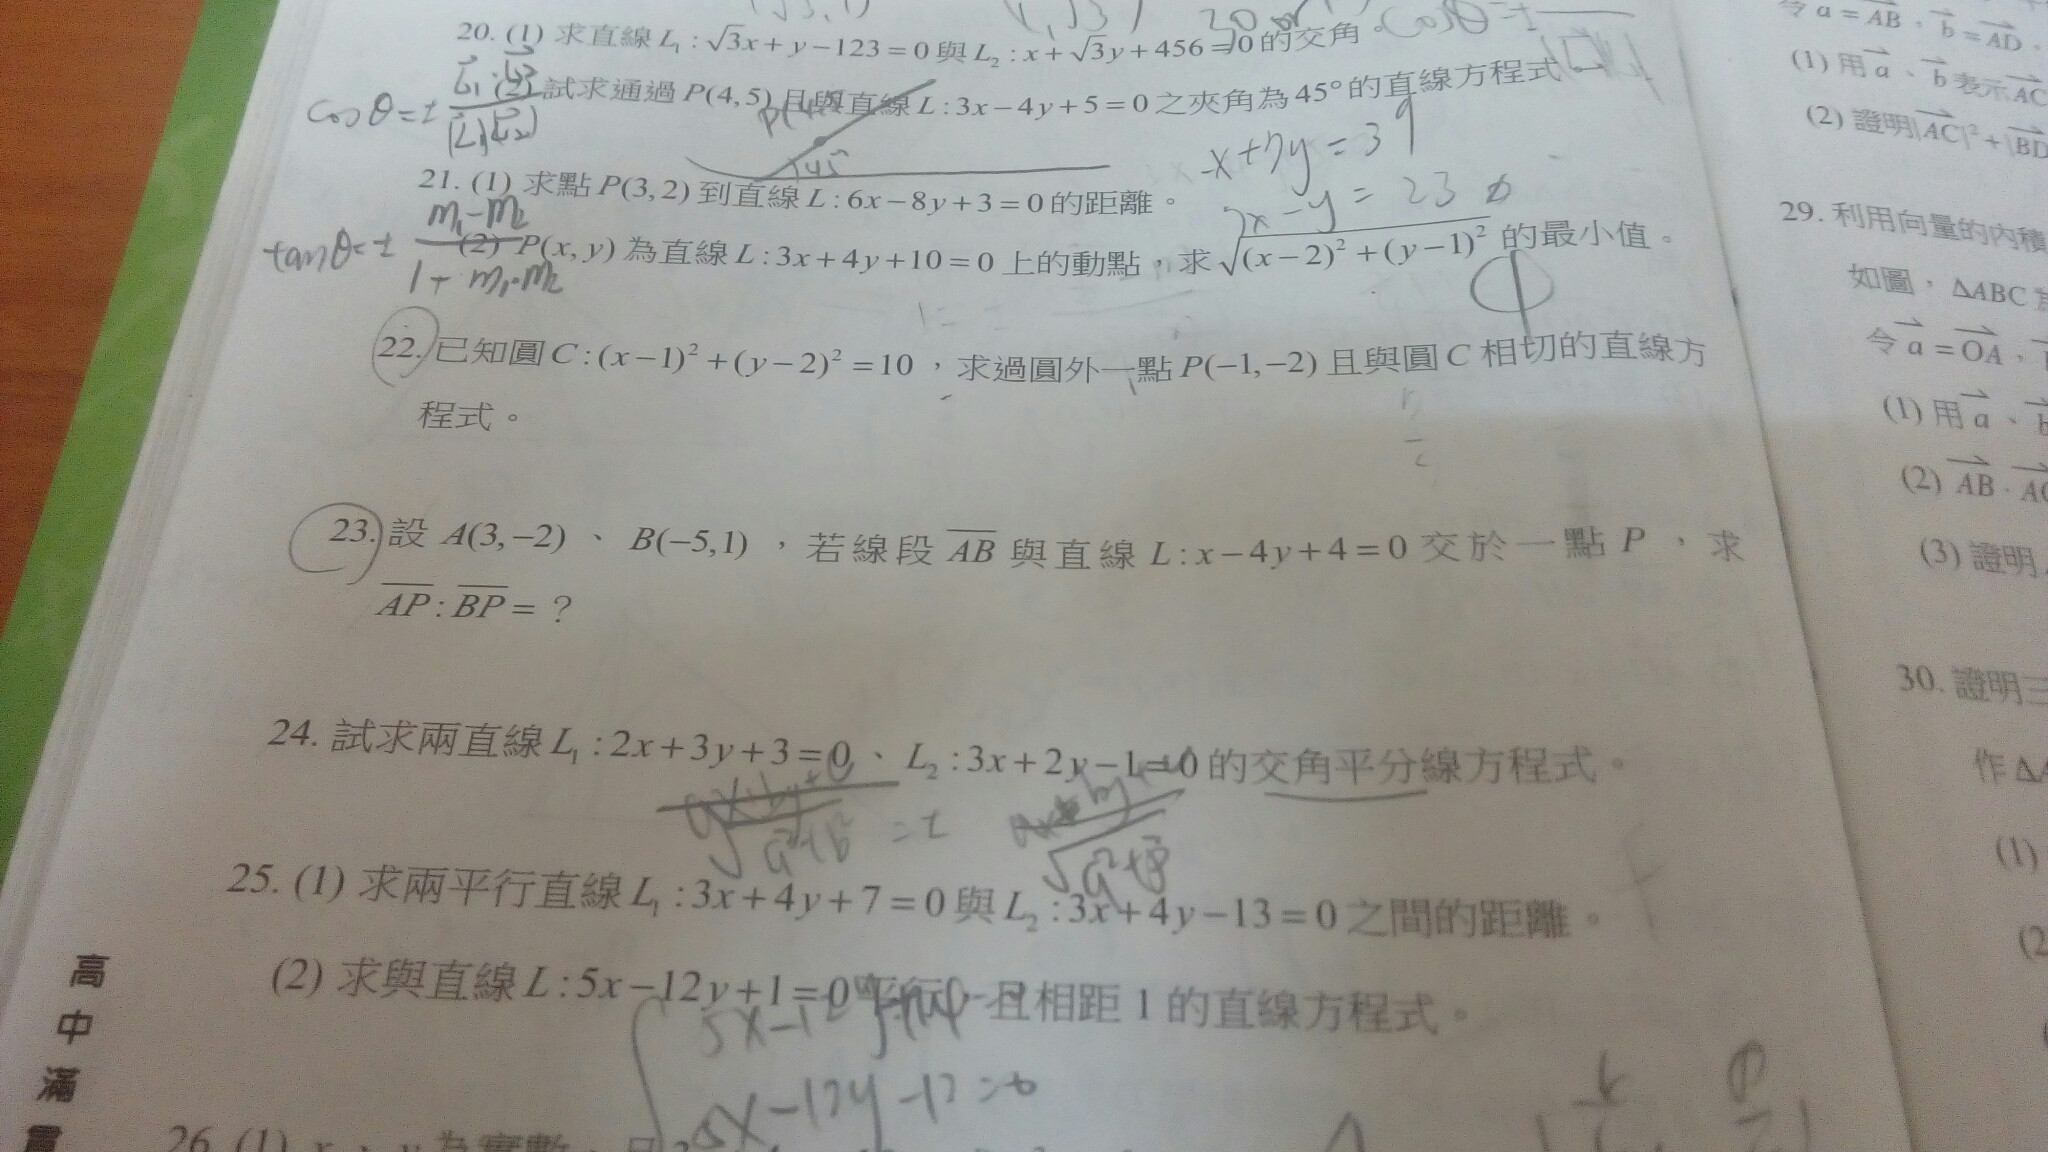 20. (1) 求直線 L₁ : √3x + y − 123 = 0 與 L₂ : x + √3y + 456 = 0 的交角。
cosθ = ±
(2) 試求通過 P(4,5) 且與直線 L : 3x − 4y + 5 = 0 之夾角為 45° 的直線方程式。
cosθ = ±
45°
21. (1) 求點 P(3, 2) 到直線 L : 6x − 8y + 3 = 0 的距離。
tanθ = ± m₁ − m₂ / 1 + m₁·m₂
(2) P(x, y) 為直線 L : 3x + 4y + 10 = 0 上的動點，求 √(x − 2)² + (y − 1)² 的最小值。
22. 已知圓 C : (x − 1)² + (y − 2)² = 10，求過圓外一點 P(−1, −2) 且與圓 C 相切的直線方
程式。
23. 設 A(3, −2)、B(−5, 1)，若線段 AB 與直線 L : x − 4y + 4 = 0 交於一點 P，求
AP : BP = ?
24. 試求兩直線 L₁ : 2x + 3y + 3 = 0、L₂ : 3x + 2y − 1 = 0 的交角平分線方程式。
√a²+b² = ± √a²+b²
25. (1) 求兩平行直線 L₁ : 3x + 4y + 7 = 0 與 L₂ : 3x + 4y − 13 = 0 之間的距離。
(2) 求與直線 L : 5x − 12y + 1 = 0 平行，且相距 1 的直線方程式。
5x − 12y − 12 = 0
26. (1) x、y 為實數，
高中滿
令 a = AB，b = AD，
(1) 用 a、b 表示 AC
(2) 證明|AC|² + |BD
29. 利用向量的內積
如圖，ΔABC
令 a = OA，
(1) 用 a、b
(2) AB · AC
(3) 證明
30. 證明三
作 ΔA
(1)
(2